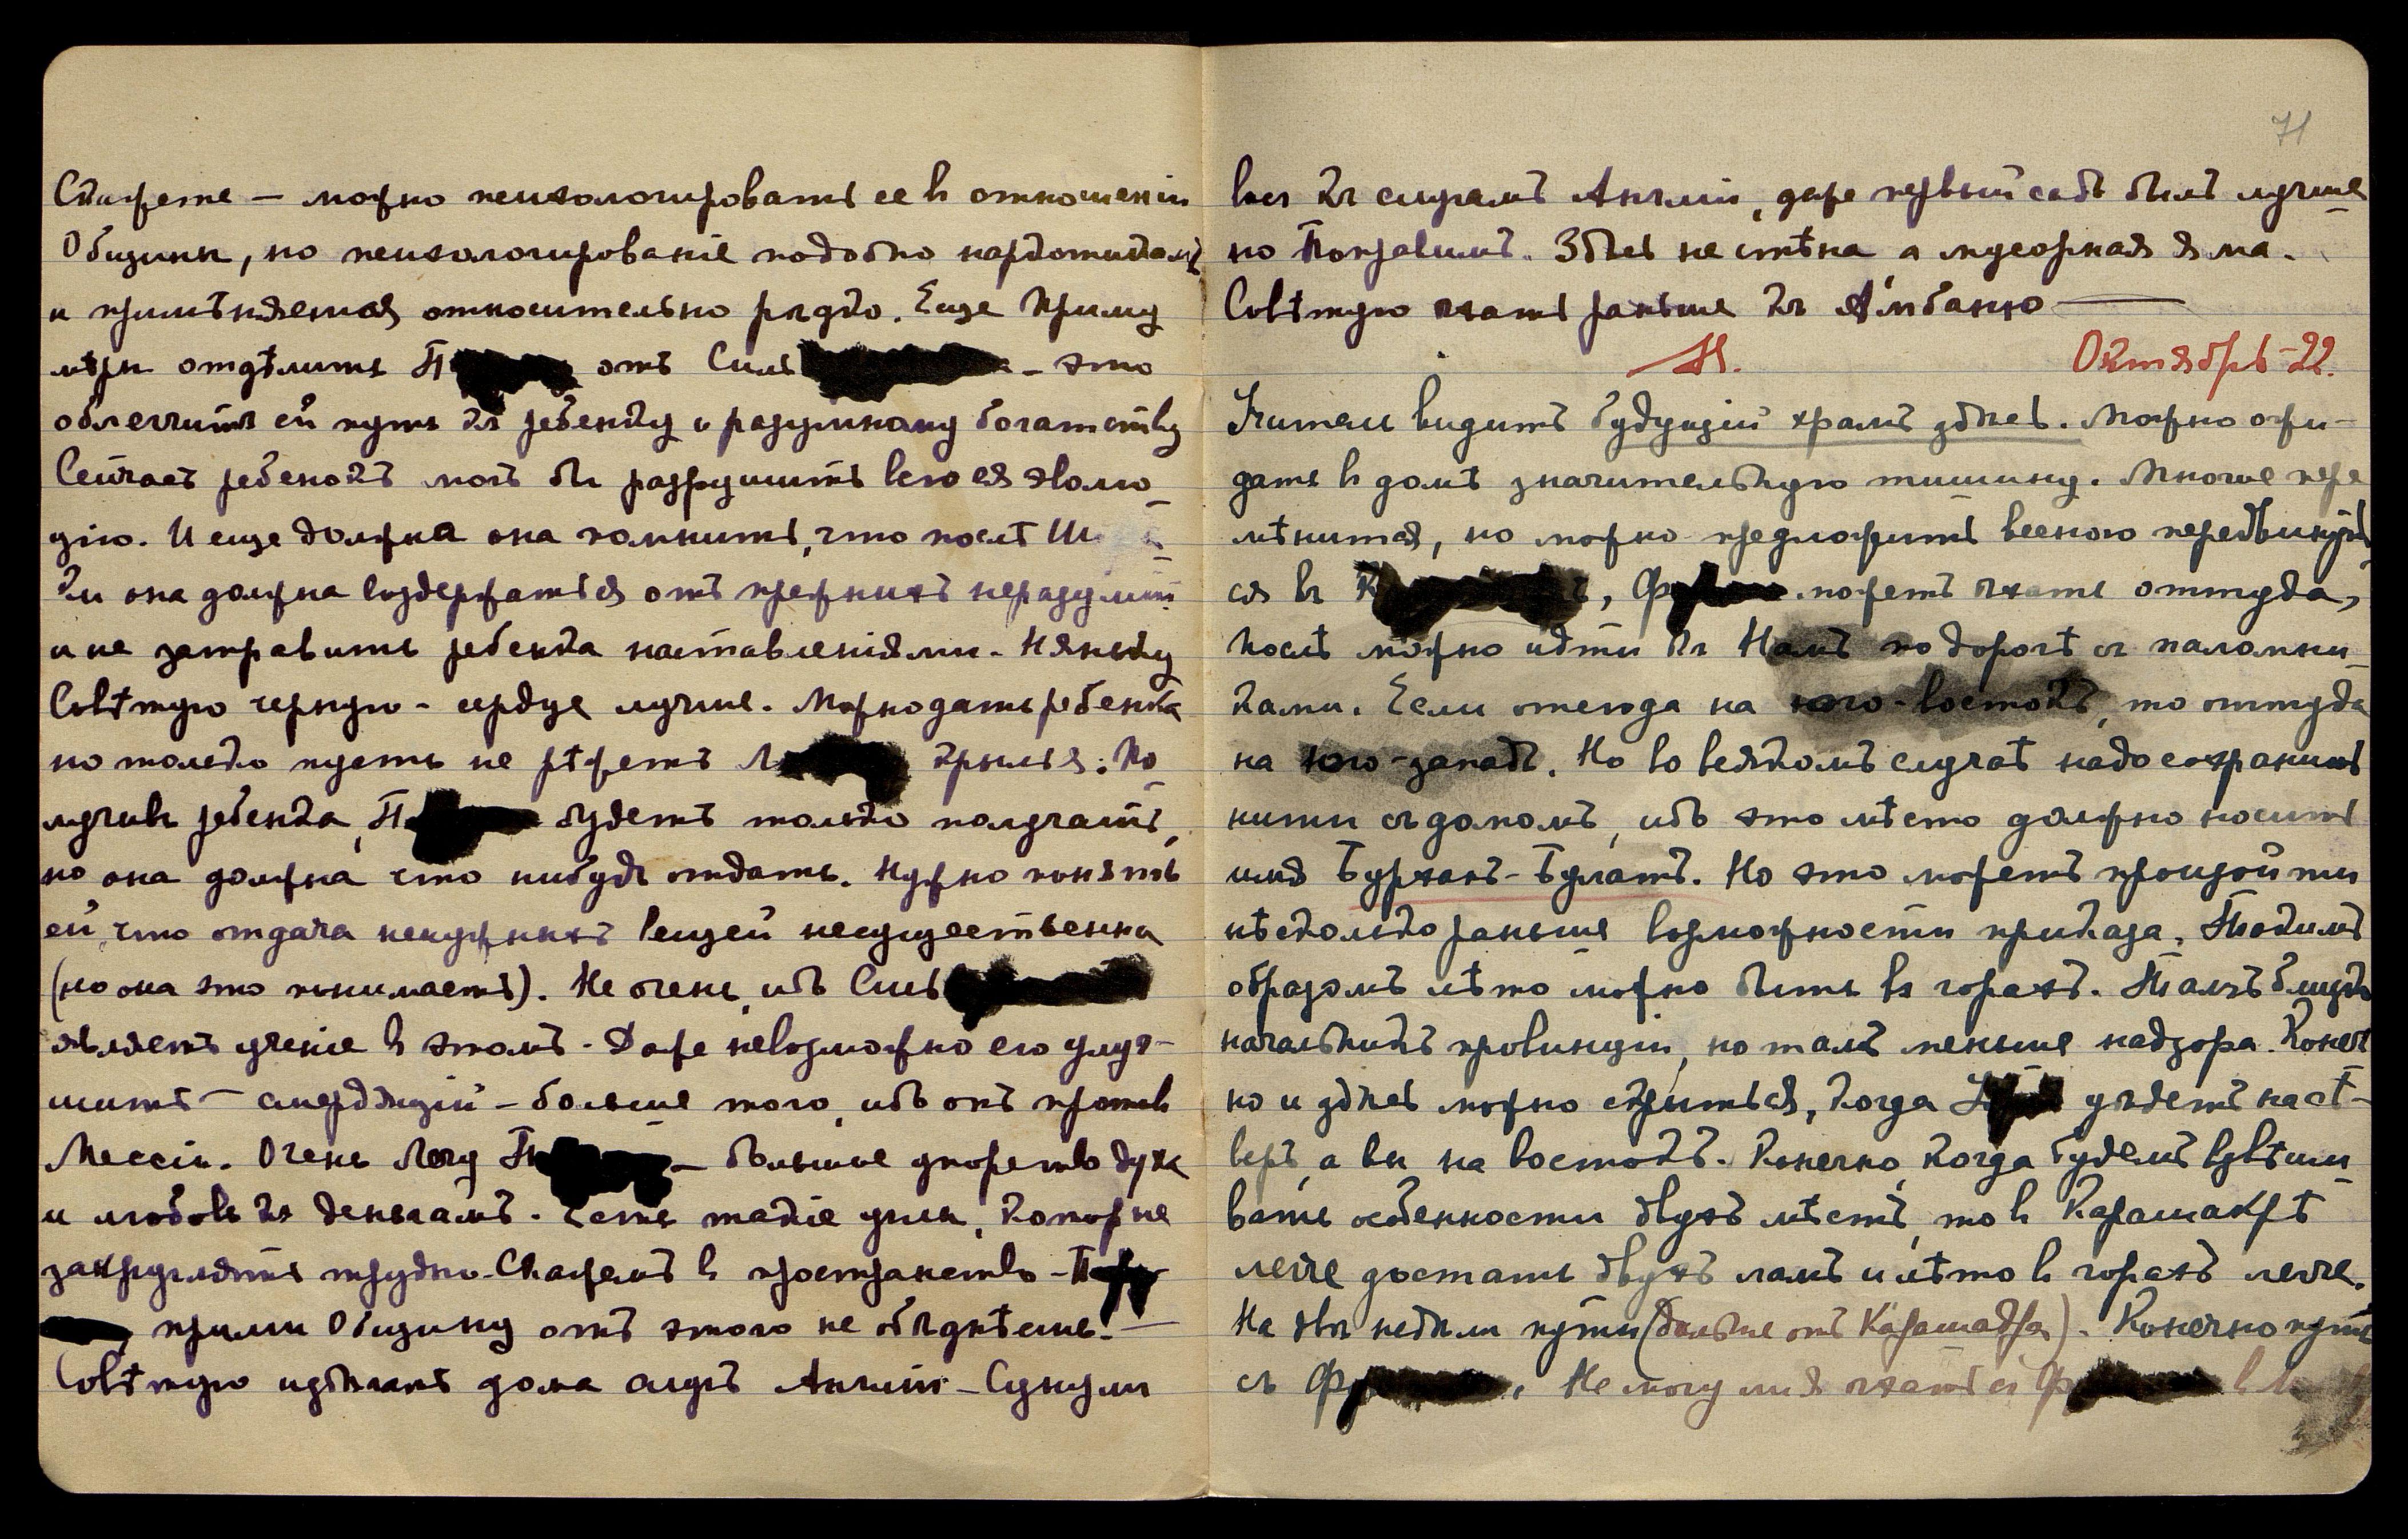 Скажете — можно психологировать ее в отношеніи
Общины, но психологированіе подобно наркотикамъ
и примѣняется относительно рѣдко. Еще приму
мѣры отдѣлить П отъ Силь — это
облегчитъ ей путь къ ребенку и разумному богатству
Сейчасъ ребенокъ могъ бы разрушить всю ея эволю-
цію. И еще должна она помнить, что послѣ
она должна воздержаться отъ прежнихъ неразумій
и не затравить ребенка наставленіями. Няньку
Совѣтую черную - сердце лучше. Можно дать ребенка
но только пусть не рѣжетъ Л крылья. По-
лучивъ ребенка, П будетъ только получать,
но она должна что нибудь отдать. Нужно понять
ей, что отдача ненужныхъ вещей несущественна
(но она это понимаетъ). Не очень, ибо Силь
являетъ ученіе въ этомъ. Даже невозможно его улуч-
шить — смердящій - больше того, ибо онъ противъ
Мессіи. Очень Могу - большое упорство духа
и любовь къ деньгамъ. Есть такіе углы, которые
закруглять трудно. Скажемъ въ пространство -
прими Общину отъ этого не обѣднѣешь. —
Совѣтую избѣгать дома слугъ Англіи - Сунули
васъ къ слугамъ Англіи, даже первый садъ былъ лучше
но Поправимъ. Здѣсь не стѣна, а мусорная яма.
Совѣтую ѣхать раньше къ Альбанію —
71
Октябрь-22.
Учитель видитъ будущій храмъ здѣсь. Можно ожи-
дать въ домѣ значительную тишину. Многое пере
мѣнится, но можно предложить весною передвинуть
ся въ К, Ф можетъ ѣхать оттуда,
послѣ можно идти къ Намъ по дорогѣ съ паломни-
ками. Если отсюда на юго-востокъ, то оттуда
на юго-западъ. Но во всякомъ случаѣ надо сохранить
нити съ домомъ, ибо это мѣсто должно носить
имя Бурханъ-Булатъ. Но это можетъ произойти
нѣсколько раньше возможности приказа. Такимъ
образомъ лѣто можно быть въ горахъ. Тамъ близко
начальникъ провинціи, но тамъ меньше надзора. Конеч
но и здѣсь можно скрыться, когда уѣдетъ на сѣ-
веръ, а вы на востокъ. Конечно, когда будемъ взвѣши-
вать особенности двухъ мѣстъ, то въ Карашакрѣ
легче достать двухъ ламъ и лѣто въ горахъ легче.
На двѣ недѣли пути (дальше отъ Карашакра). Конечно путь
съ Ф. Не могу ли я ѣхать съ Ф